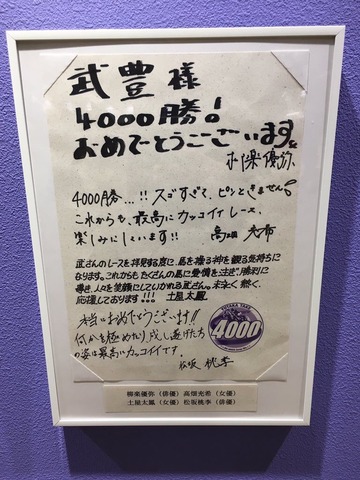 武豊様
4000勝!
おめでとうございます。
柳楽優弥
4000勝...!! スゴすぎて、ピンときません!
これからも、最高にカッコイイレース、
楽しみにしています!! 高畑 充希
武さんのレースを拝見する度に、馬を操る神を観る気持ちに
なります。これからもたくさんの馬に愛情を注ぎ、勝利に
導き、人々を笑顔にしていかれる武さん。末永く熱く、
応援しております!!! 土屋太鳳
本当におめでとうございます!!
何かを極めたり、成し遂げた方
の姿は最高にカッコイイです。
松坂 桃李
YUTAKA TAKE
4000
柳楽優弥(俳優) 高畑充希(女優)
土屋太鳳(女優) 松坂桃李(俳優)